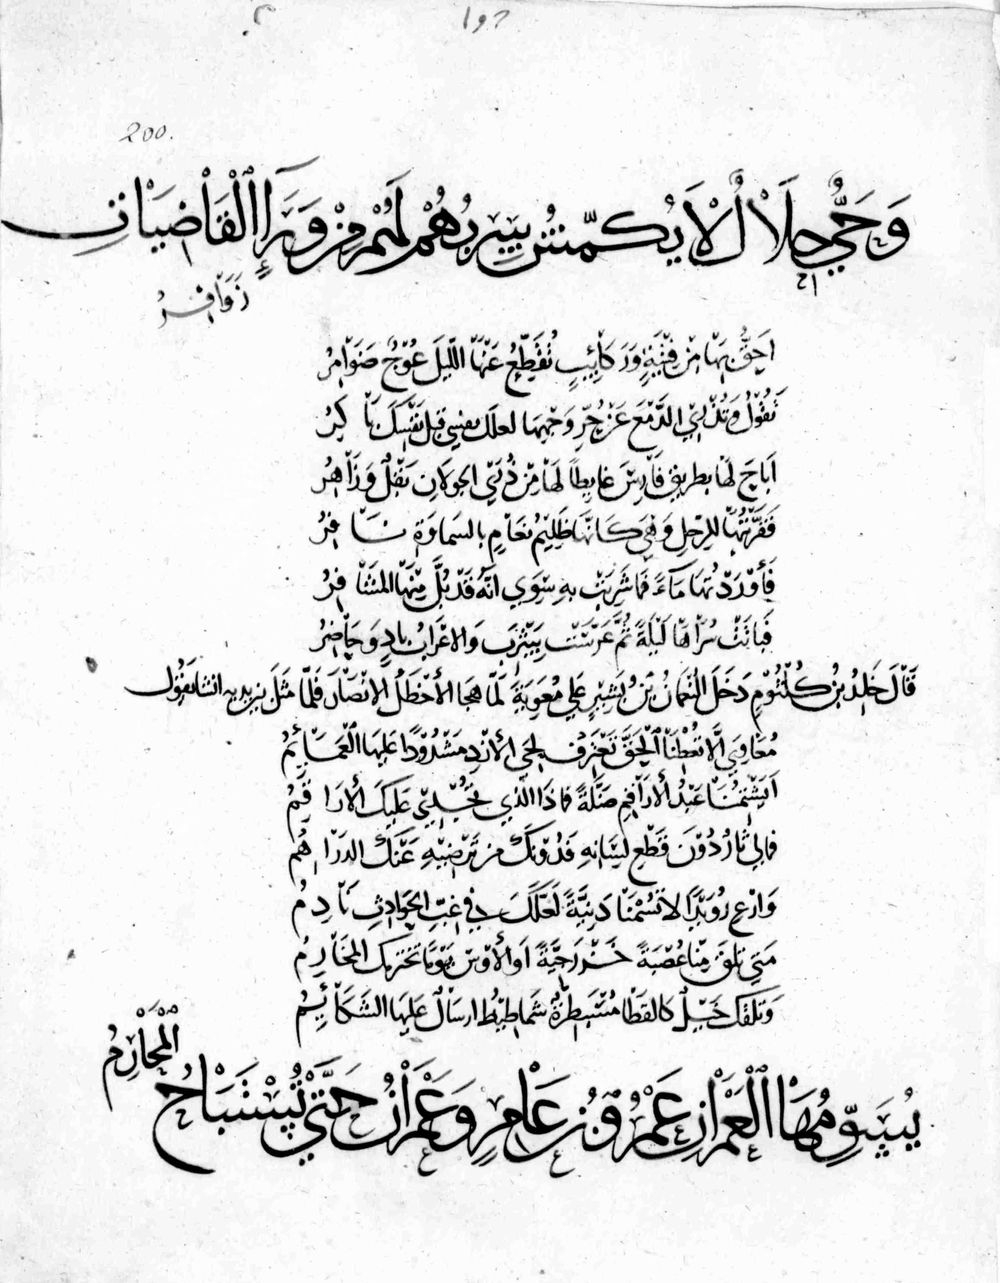 ١٩٢
200.
وَحَيٌّ حِلَالٌ لَا يُكَمَّشُ سِرْبُهُمْ لَهُمْ مِنْ وَرَاءِ الْقَاصِيَاتِ
زَوَافِرُ
اَحَقٌّ بِهَا مِنْ فِتْيَةٍ وَرَكَائِبٍ تُقَطِّعُ عَنْهَا اللَّيلَ عُوْجٌ ضَوَامِرُ
تَقُوْلُ وَتُذْرِي الدَّمْعَ عَنْ حُرِّ وَجْهِهَا لعلك نفسي قبل نَفْسَكَ بَاكِرُ
اَبَاحَ لَهَا بطريق فَارِسَ غايطًا لَهَا مِنْ ذُرَى الجولانِ بَقْلٌ وَزَاهِرُ
فَقَرَّبْتُهَا لِلرحْلِ وَهْيَ كَانَهَا ظَلِيْمُ نَعَامٍ بالسَماوَةِ نَافِرُ
فَأَوْرَدْتُهَا مَآءً فَمَا شَرِبَتْ بِهِ سِوَي انَّهُ قَدْ بُلَّ مِنْهَا المَشَافِرُ
فَبَاتَتْ سُرَاهَا لَيْلَةً ثُمَّ عَرَّسَتْ بِيَثْرِبَ وَالاعْرَابُ بادٍ وَحَاضِرُ
قَالَ خَالدُ بْنُ كُلْثُوْمٍ دَخَلَ النُعْمَانُ بْنُ بَشِيْرٍ عَلي مُعوِيَةَ لَمّا هجا الأخْطَلُ الانْصَارَ فَلَمّا مَثَلَ بين يديه انشا يقول
مُعَاوِيَ إلَّا تُعْطِنَا الْحَقَّ تَعْتَرِفْ لِحَي الأزْدِ مَشْدُوْدًا عَلَيهَا الْعَمَائِمُ
اَيَشْتِمُنَا عَبْدُ الأرَاقِمِ ضَلَّةً فماذَا الَّذِي تُجْدِيْ عَلَيكَ الأرَاقِمُ
فمالِيَ ثَارٌ دُوْنَ قَطْعِ لِسَانِهِ فَدُونَكَ من تُرْضِيْهِ عَنْكَ الدَرَاهِمُ
وَارْعِ رُوَيْدًا لا تَسُمْنَا دَنِيَّةً لَعَلَّكَ فِي غِبِّ الحَوَادِثِ نَادِمُ
مَتَي تَلْقَ مِنَا عُصْبَةً خَزْرَجِيَّةً اَو الأَوْسَ يَوْمًا تَخْتَرِمْكَ المَخَارِمُ
وَتَلْقَكَ خَيْلٌ كَالقَطَا مُسْتَطِيْرَةٌ شَمَاطِيْطُ ارسَالٌ عَلَيهَا الشَكَائِمُ
يُسَوِّمُهَا الْعَمْرَانِ عَمْرُو بْنُ عَامِرٍ وَعَمْرَانُ حَتَّي تُسْتَبَاحَ
الْمَحَارِمُ